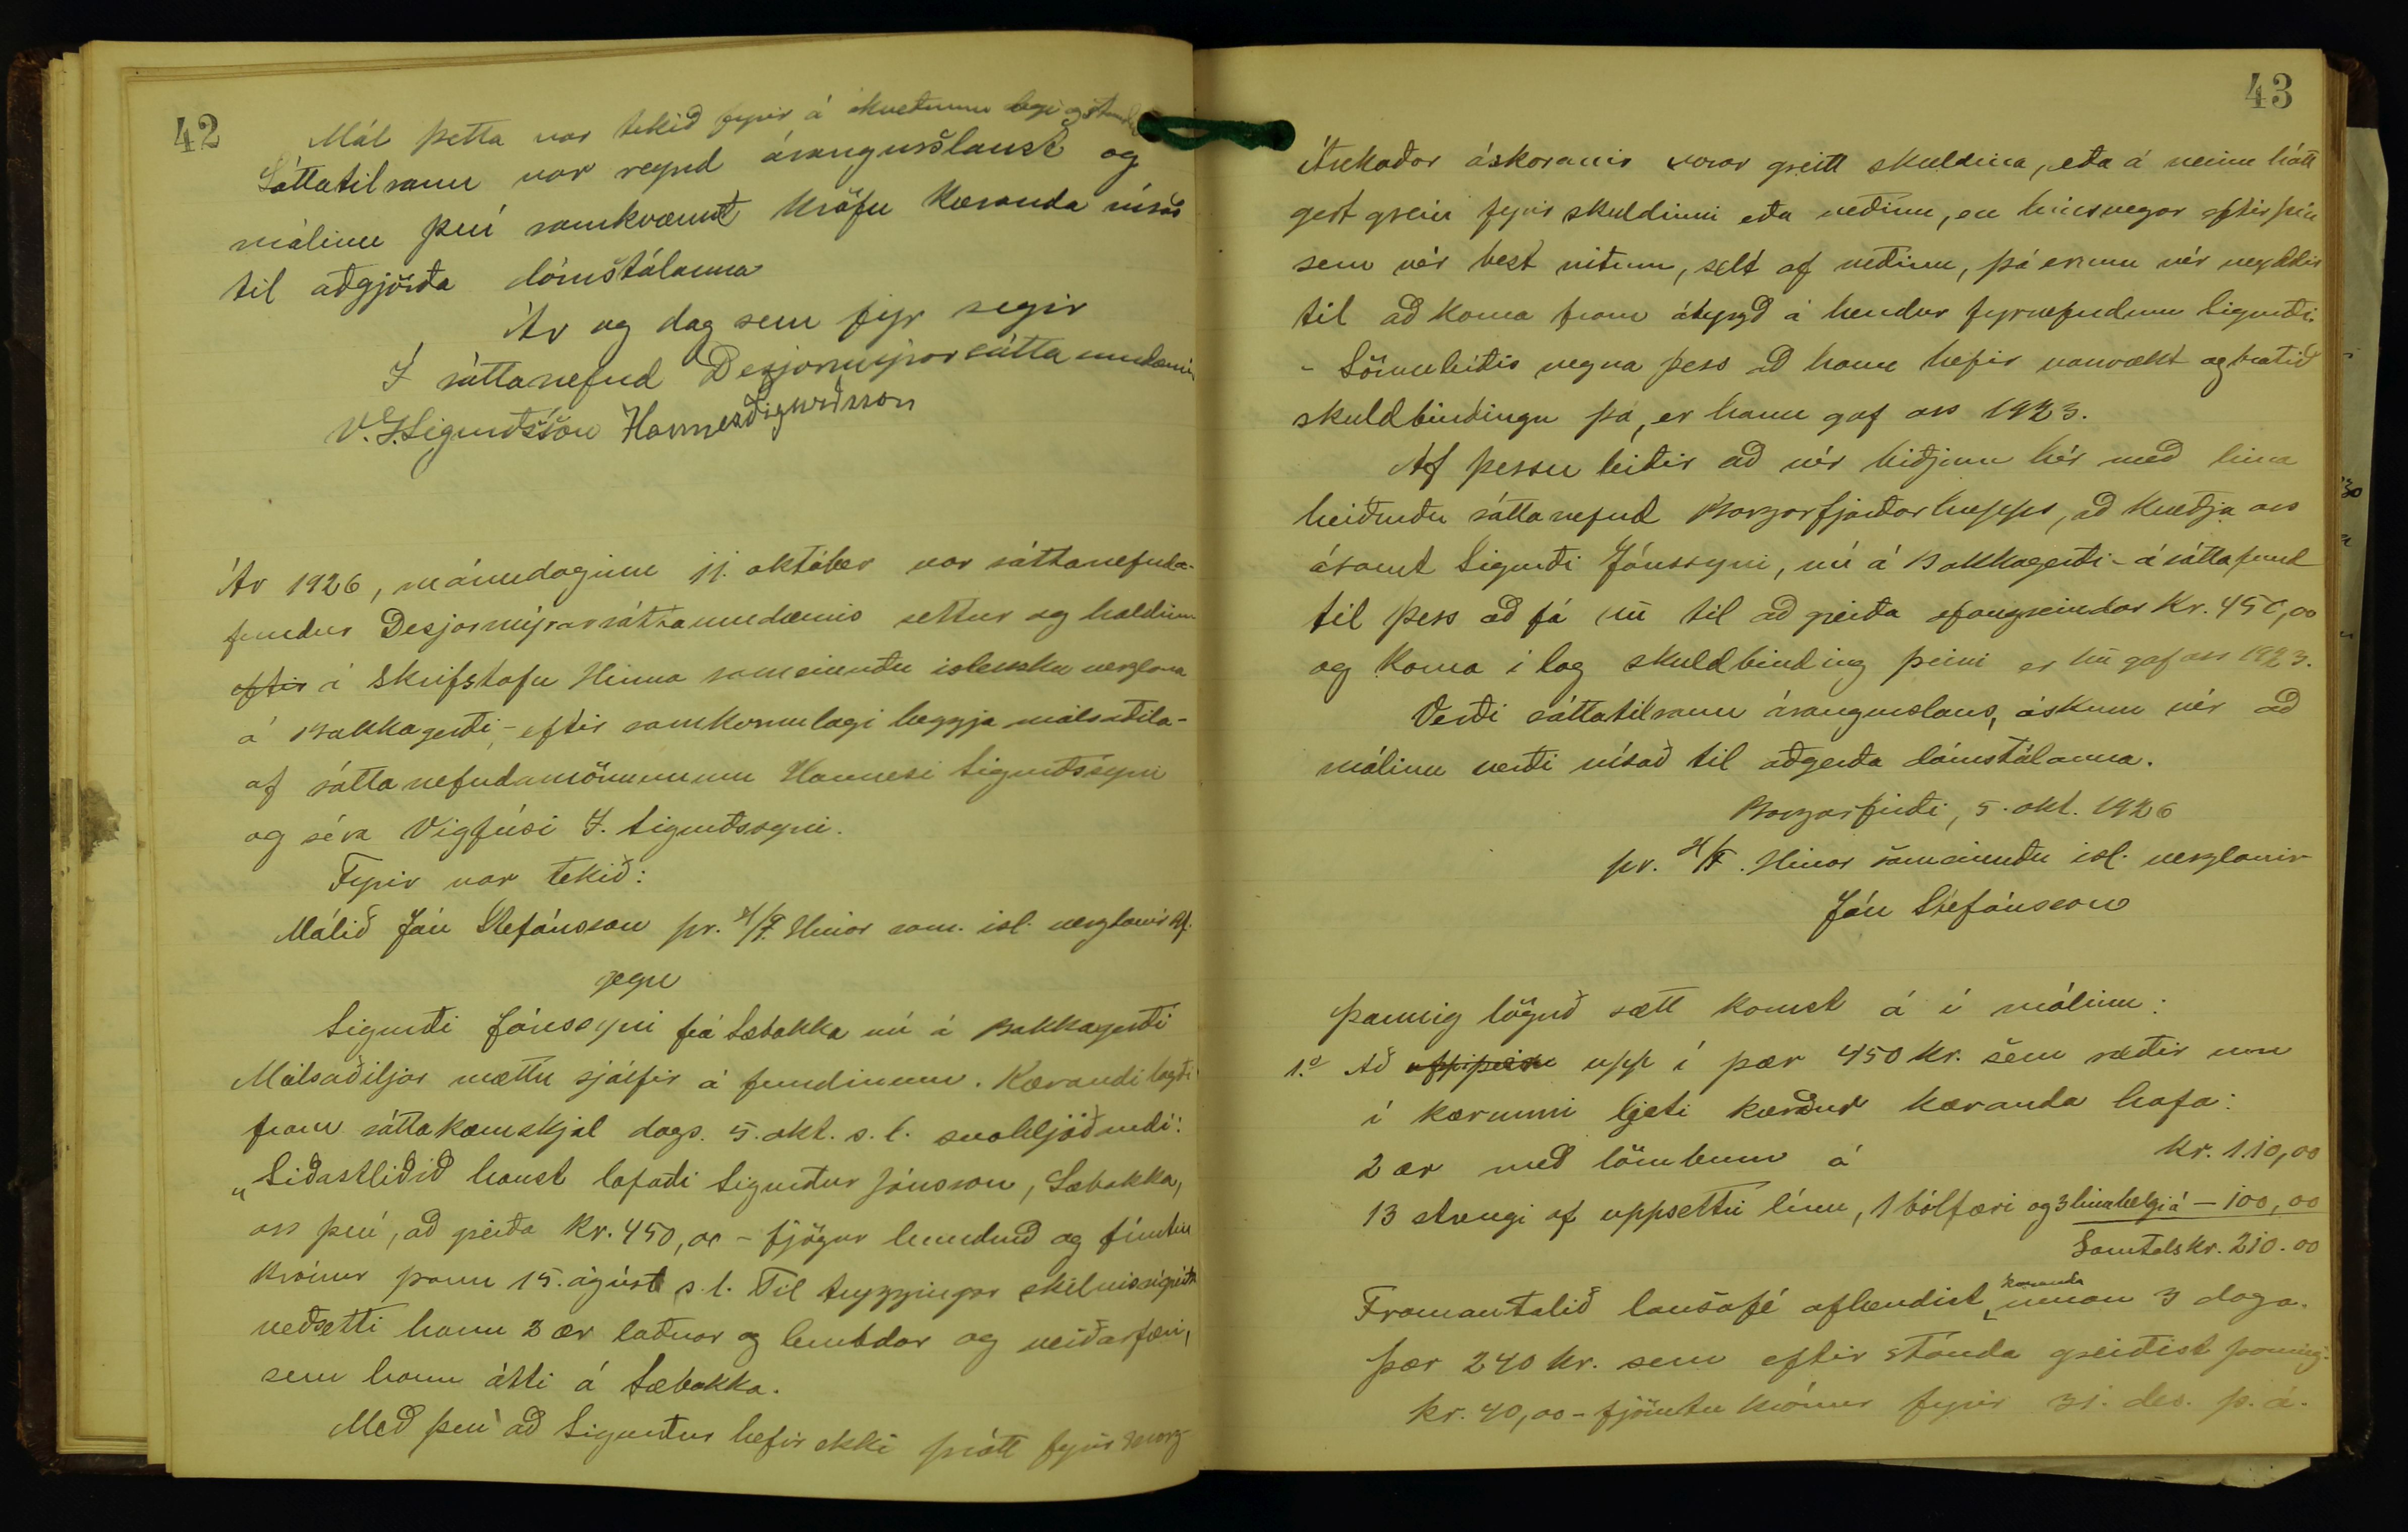 42
Mál þetta var tekið fyrir á ákveðnum degi og stundu
Sáttatilraun var reynd árangurslaust og
málinu því samkvæmt kröfu kæranda vísað
til aðgjörða dómstólanna
Ár og dag sem fyr segir
Í sáttanefnd Desjarmýrarsáttaumdæmis
V. I. Sigurðsson Hannes Sigurdsson
Ár 1926, mánudaginn 11. október var sáttanefnda-
fundur Desjarmýrarsáttaumdæmis settur og haldinn
eftir á skrifstofu Hinna sameinuðu islensku verzlana
á Bakkagerði, - eftir samkomulagi beggja málsaðila -
af sáttanefndamönnunum Hannesi Sigurðssyni
og séra Vigfúsi I. Sigurðssyni.
Fyrir var tekið:
Málið Jón Stefánsson pr. H/F. Hinar sam. isl. verzlanir Bf.
gegn
Sigurði Jónssyni frá Sæbakka nú á Bakkagerði
Málsaðiljar mættu sjálfir á fundinum. Kærandi lagði
fram sáttakæruskjal dags. 5. okt. s. l. svohljóðandi:
„Siðastliðið haust lofaði Sigurður Jónsson, Sæbakka,
oss því, að greiða kr. 450,00 - fjögur hundruð og fimtíu
krónur þann 15. ágúst s. l. Til tryggingar skilvísri greiðslu
veðsetti hann 2 ær loðnar og lembdar og veiðarfæri,
sem hann átti á Sæbakka.
Með því að Sigurður hefir ekki þrátt fyrir marg-
43
ítrekaðar áskoranir vorar greitt skuldina, eða á neinn hátt
gert grein fyrir skuldinni eða veðinu, en hinsvegar eftir því
sem vér best vitum, selt af veðinu, þá erum vér neyddir
til að koma fram ábyrgð á hendur fyrnefndum Sigurði.
- Sömuleiðis vegna þess að hann hefir vanrækt og brotið
skuldbindingu þá, er hann gaf oss 1923.
Af þessu leiðir að vér biðjum hér með hina
heiðruðu sáttanefnd Borgarfjarðarhrepps, að kveðja oss
ásamt Sigurði Jónssyni, nú á Bakkagerði - á sáttafund
til þess að fá hann til að greiða ofangreindar kr. 450,00
og koma i lag skuldbinding þeirri er hann gaf oss 1923.
Verði sáttatilraun árangurslaus, óskum vér að
málinu verði vísað til aðgerða dómstólanna.
Borgarfirði, 5. okt. 1926
pr. H/F. Hinar sameinuðu isl. verzlanir
Jón Stefánsson
Þannig löguð sætt komst á í málinu:
1.º Að upp í þær 450 kr. sem ræðir um
í kærunni ljeti kærður kæranda hafa:
2 ær með lömbum á kr. 110,00
13 strengi af uppsettri línu, 1 bólfæri og 3 línubelgi á - 100,00
Samtals kr. 210.00
Framantalið lausafé afhendist kæranda innan 3 daga.
Þær 240 kr. sem eftir standa greiðist þannig:
kr. 40,00 - fjörutíu krónur fyrir 31. des. þ. á.